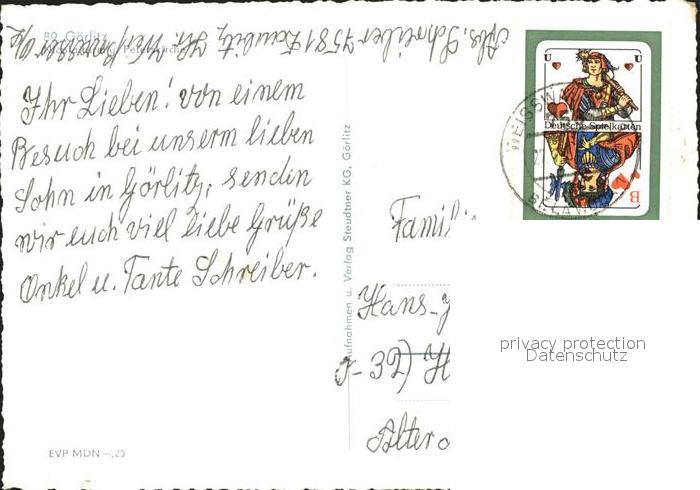 89 Görlitz
Abs. Schreiber 7581 Zaublitz Kr. Weißwasser O/L
Ihr Lieben! Von einem
Besuch bei unserm lieben
Sohn in Görlitz, senden
wir euch viel liebe Grüße
Onkel u. Tante Schreiber.
EVP MDN –,25
Aufnahmen u. Verlag Steudtner KG, Görlitz
U U
Deutsche Spielkarten
B
WEISSW
Famili
Hans-
32) H
Alter
privacy protection
Datenschutz